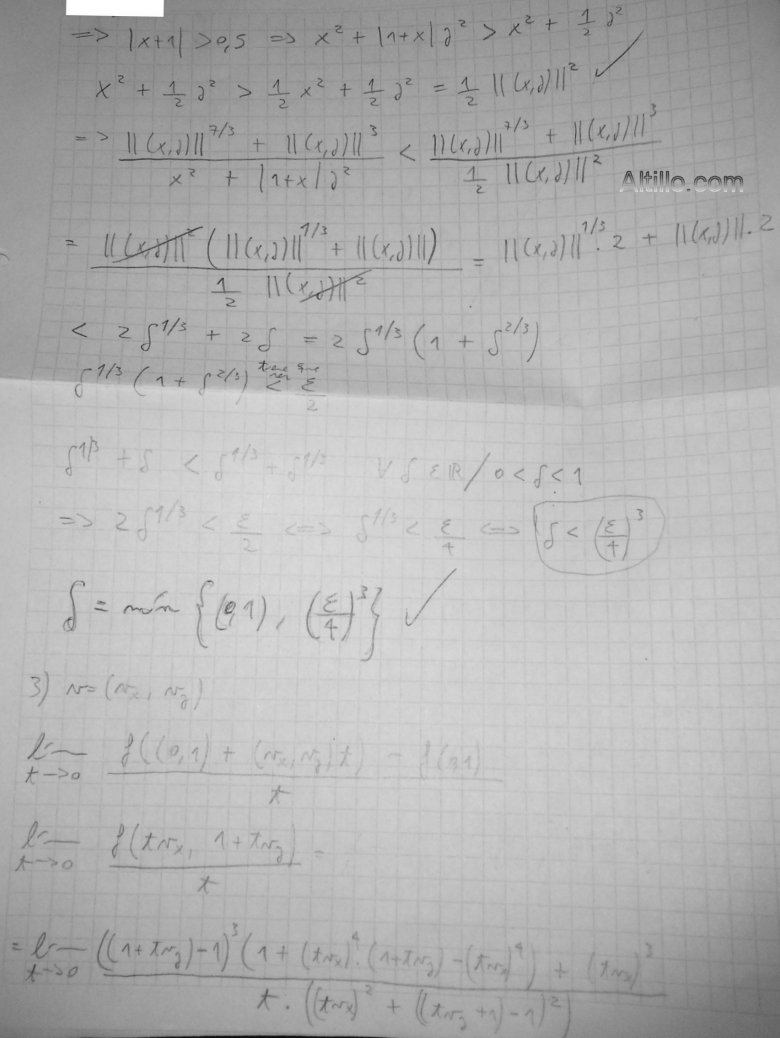 => |x+1| > 0,5 => x² + |1+x| y² > x² + 1/2 y²
x² + 1/2 y² > 1/2 x² + 1/2 y² = 1/2 ||(x,y)||² ✓
=> (||(x,y)||^7/3 + ||(x,y)||³) / (x² + |1+x| y²) < (||(x,y)||^7/3 + ||(x,y)||³) / (1/2 ||(x,y)||²)
Altillo.com
= ||(x,y)||² (||(x,y)||^1/3 + ||(x,y)||) / (1/2 ||(x,y)||²) = ||(x,y)||^1/3 · 2 + ||(x,y)|| · 2
< 2 δ^1/3 + 2δ = 2 δ^1/3 (1 + δ^2/3)
δ^1/3 (1 + δ^2/3) < ε/2
δ^1/3 + δ < δ^1/3 + δ^1/3 ∀ δ ∈ ℝ / 0 < δ < 1
=> 2 δ^1/3 < ε/2 <=> δ^1/3 < ε/4 <=> δ < (ε/4)³
δ = mín {(0,1), (ε/4)³} ✓
3) v = (vx, vy)
lím t→0 (f((0,1) + (vx, vy) t) - f(0,1)) / t
lím t→0 f(t vx, 1 + t vy) / t =
= lím t→0 (((1+t vy) - 1)³ (1 + (t vx)⁴ · (1+t vy) - (t vx)⁴) + (t vx)³) / (t · ((t vx)² + ((t vy + 1) - 1)²))